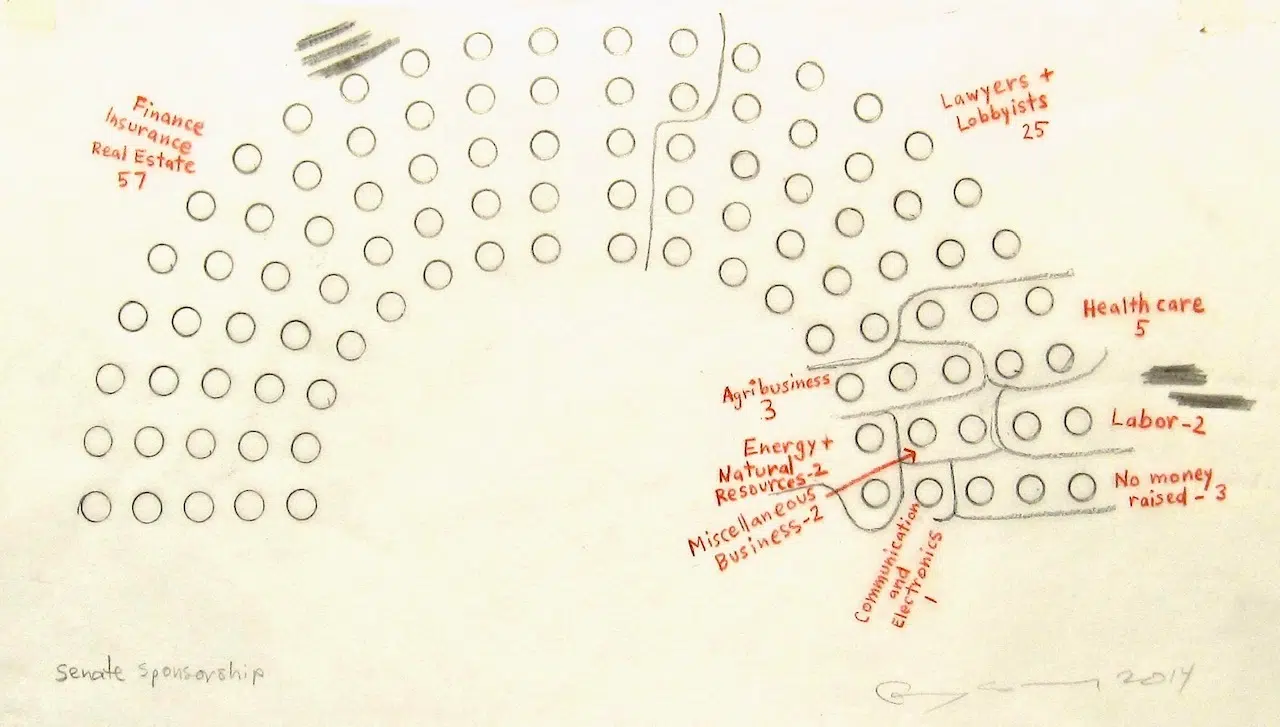 Finance
Insurance
Real Estate
57
Lawyers +
Lobbyists
25
Health care
5
Agribusiness
3
Labor-2
Energy +
Natural
Resources-2
No money
raised - 3
Miscellaneous
Business-2
Communication
and
Electronics
1
Senate Sponsorship
2014